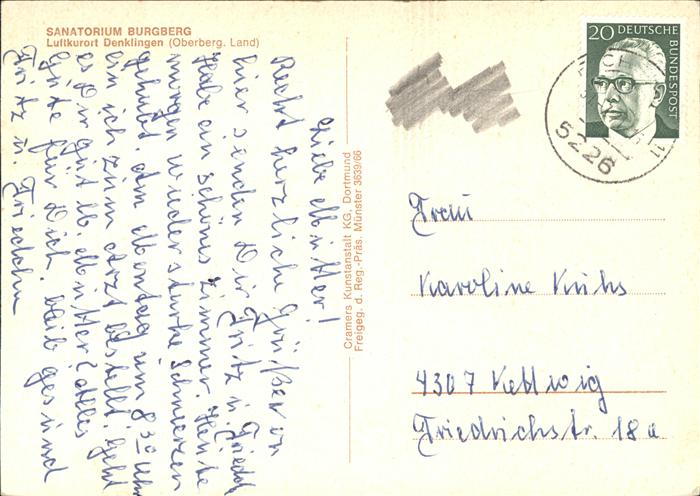 SANATORIUM BURGBERG
Luftkurort Denklingen (Oberberg. Land)
Liebe Mutter!
Recht herzliche Grüße von
hier senden Dir Fritz u. Friedch
Habe ein schönes Zimmer. Heute
morgen wieder starke Schmerzen
gehabt. Am Montag um 8 30 Uhr
bin ich zum Arzt bestellt. Geht
es Dir gut lb. Mutter? Alles
Gute für Dich, bleib gesund
Fritz u. Friedchen
Cramers Kunstanstalt KG, Dortmund
Freigeg. d. Reg.-Präs. Münster 3639/66
20 DEUTSCHE
BUNDESPOST
5226
Frau
Karoline Kuhs
4307 Kettwig
Friedrichstr. 18a